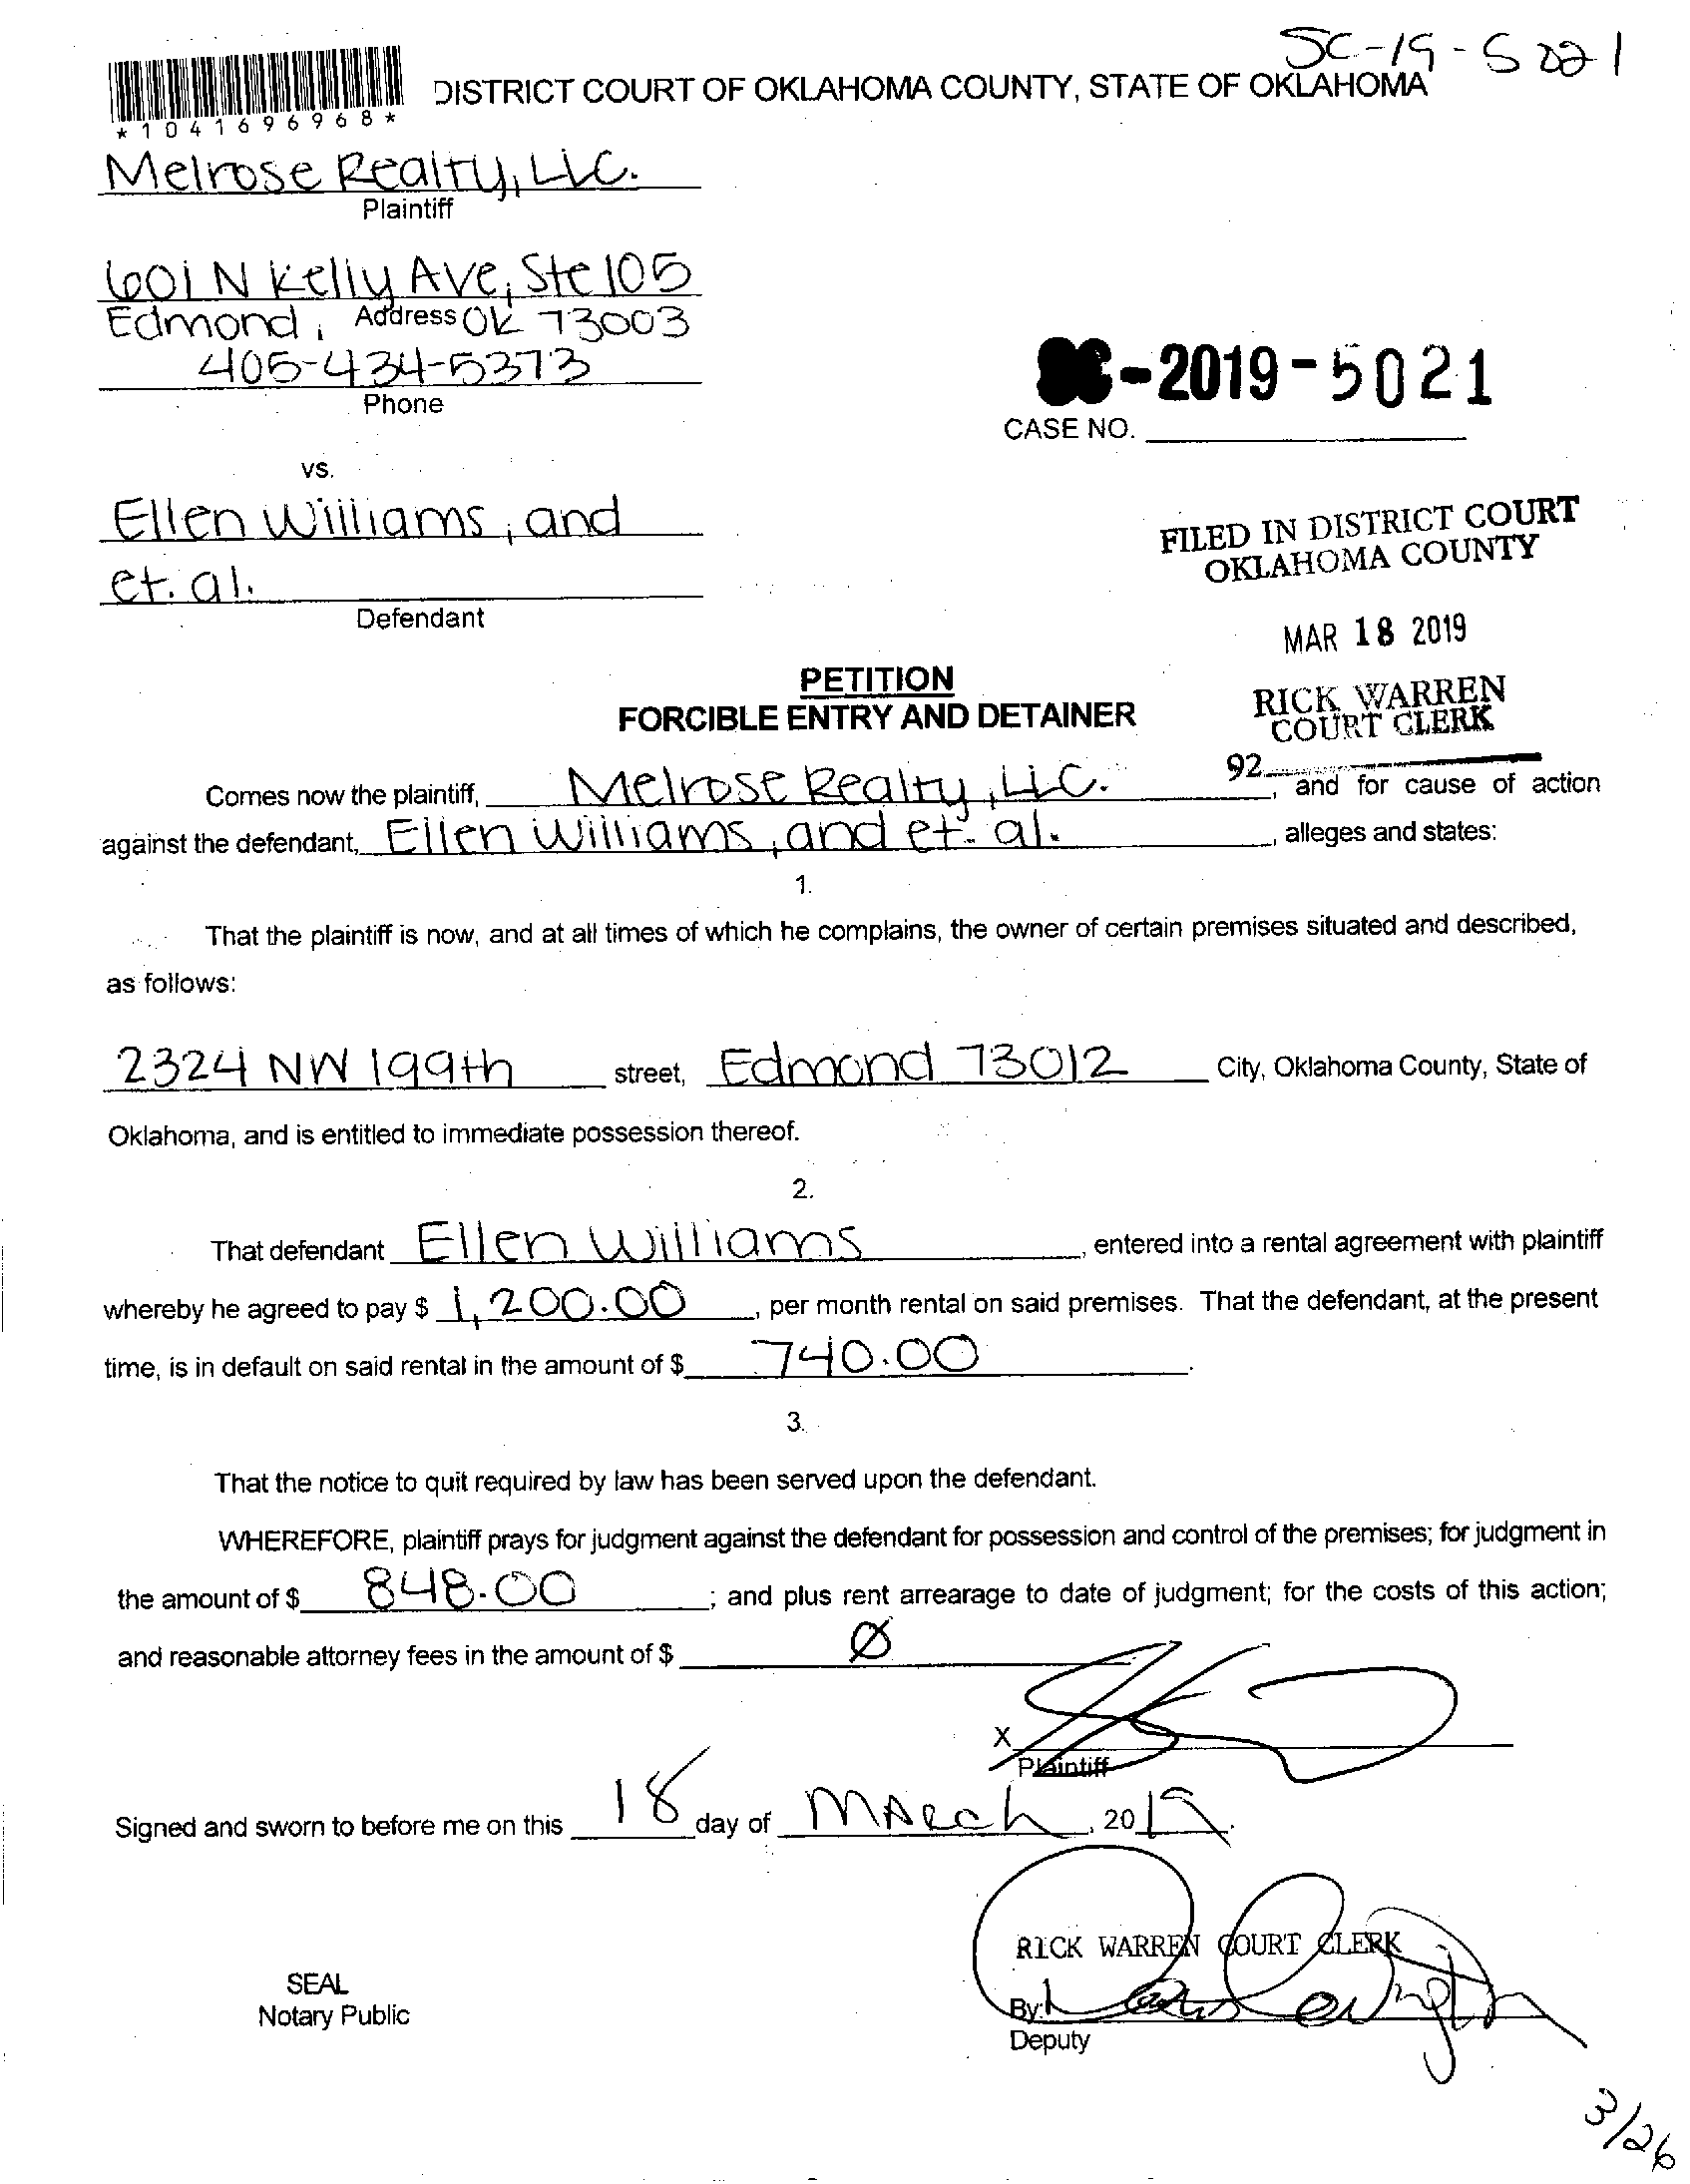 SC-19-5021
DISTRICT COURT OF OKLAHOMA COUNTY, STATE OF OKLAHOMA
*1041696968*
Melrose Realty, LLC.
Plaintiff
601 N Kelly Ave, Ste 105
Edmond, Address OK 73003
405-434-5373
Phone
SC-2019-5021
CASE NO.
vs.
Ellen Williams, and
et. al.
Defendant
FILED IN DISTRICT COURT
OKLAHOMA COUNTY
MAR 18 2019
RICK WARREN
COURT CLERK
92
PETITION
FORCIBLE ENTRY AND DETAINER
Comes now the plaintiff, Melrose Realty, LLC. , and for cause of action
against the defendant, Ellen Williams, and et. al. , alleges and states:
1.
That the plaintiff is now, and at all times of which he complains, the owner of certain premises situated and described,
as follows:
2324 NW 199th street, Edmond 73012 City, Oklahoma County, State of
Oklahoma, and is entitled to immediate possession thereof.
2.
That defendant Ellen Williams , entered into a rental agreement with plaintiff
whereby he agreed to pay $ 1,200.00 , per month rental on said premises. That the defendant, at the present
time, is in default on said rental in the amount of $ 740.00 .
3.
That the notice to quit required by law has been served upon the defendant.
WHEREFORE, plaintiff prays for judgment against the defendant for possession and control of the premises; for judgment in
the amount of $ 848.00 ; and plus rent arrearage to date of judgment; for the costs of this action;
and reasonable attorney fees in the amount of $ Ø
X
Plaintiff
Signed and sworn to before me on this 18 day of March , 2019.
RICK WARREN COURT CLERK
SEAL
Notary Public
By:
Deputy
3/26